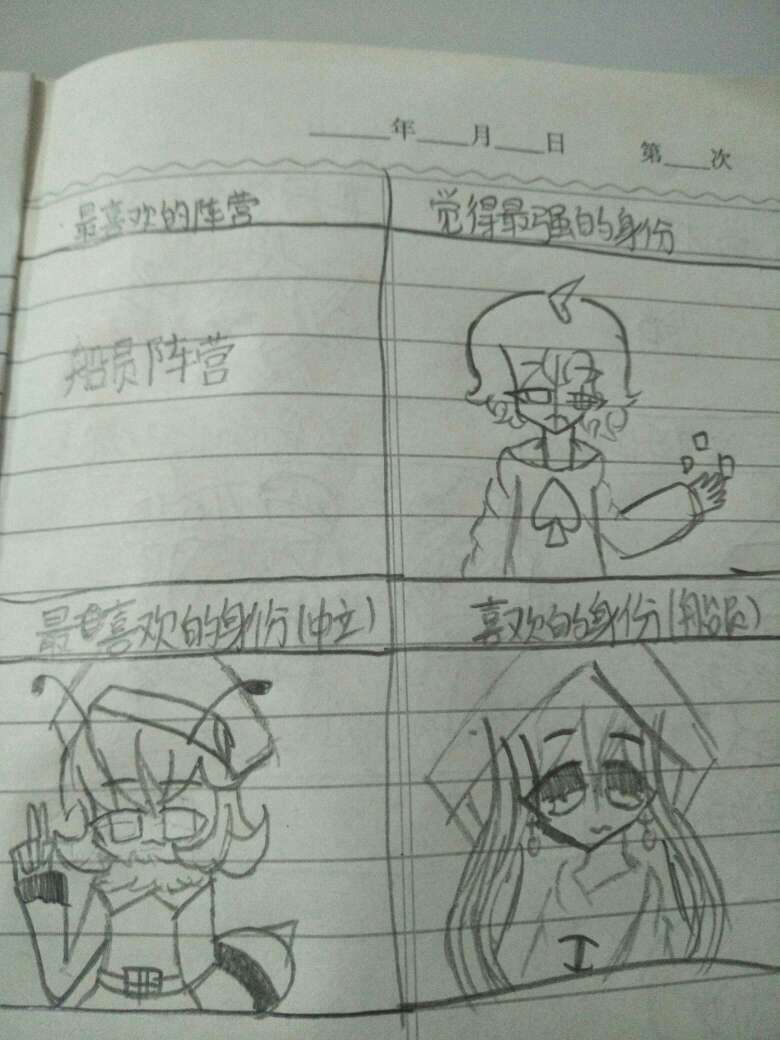 ___年___月___日 第___次
最喜欢的阵营
觉得最强的身份
船员阵营
最喜欢的身份(中立)
喜欢的身份(船员)